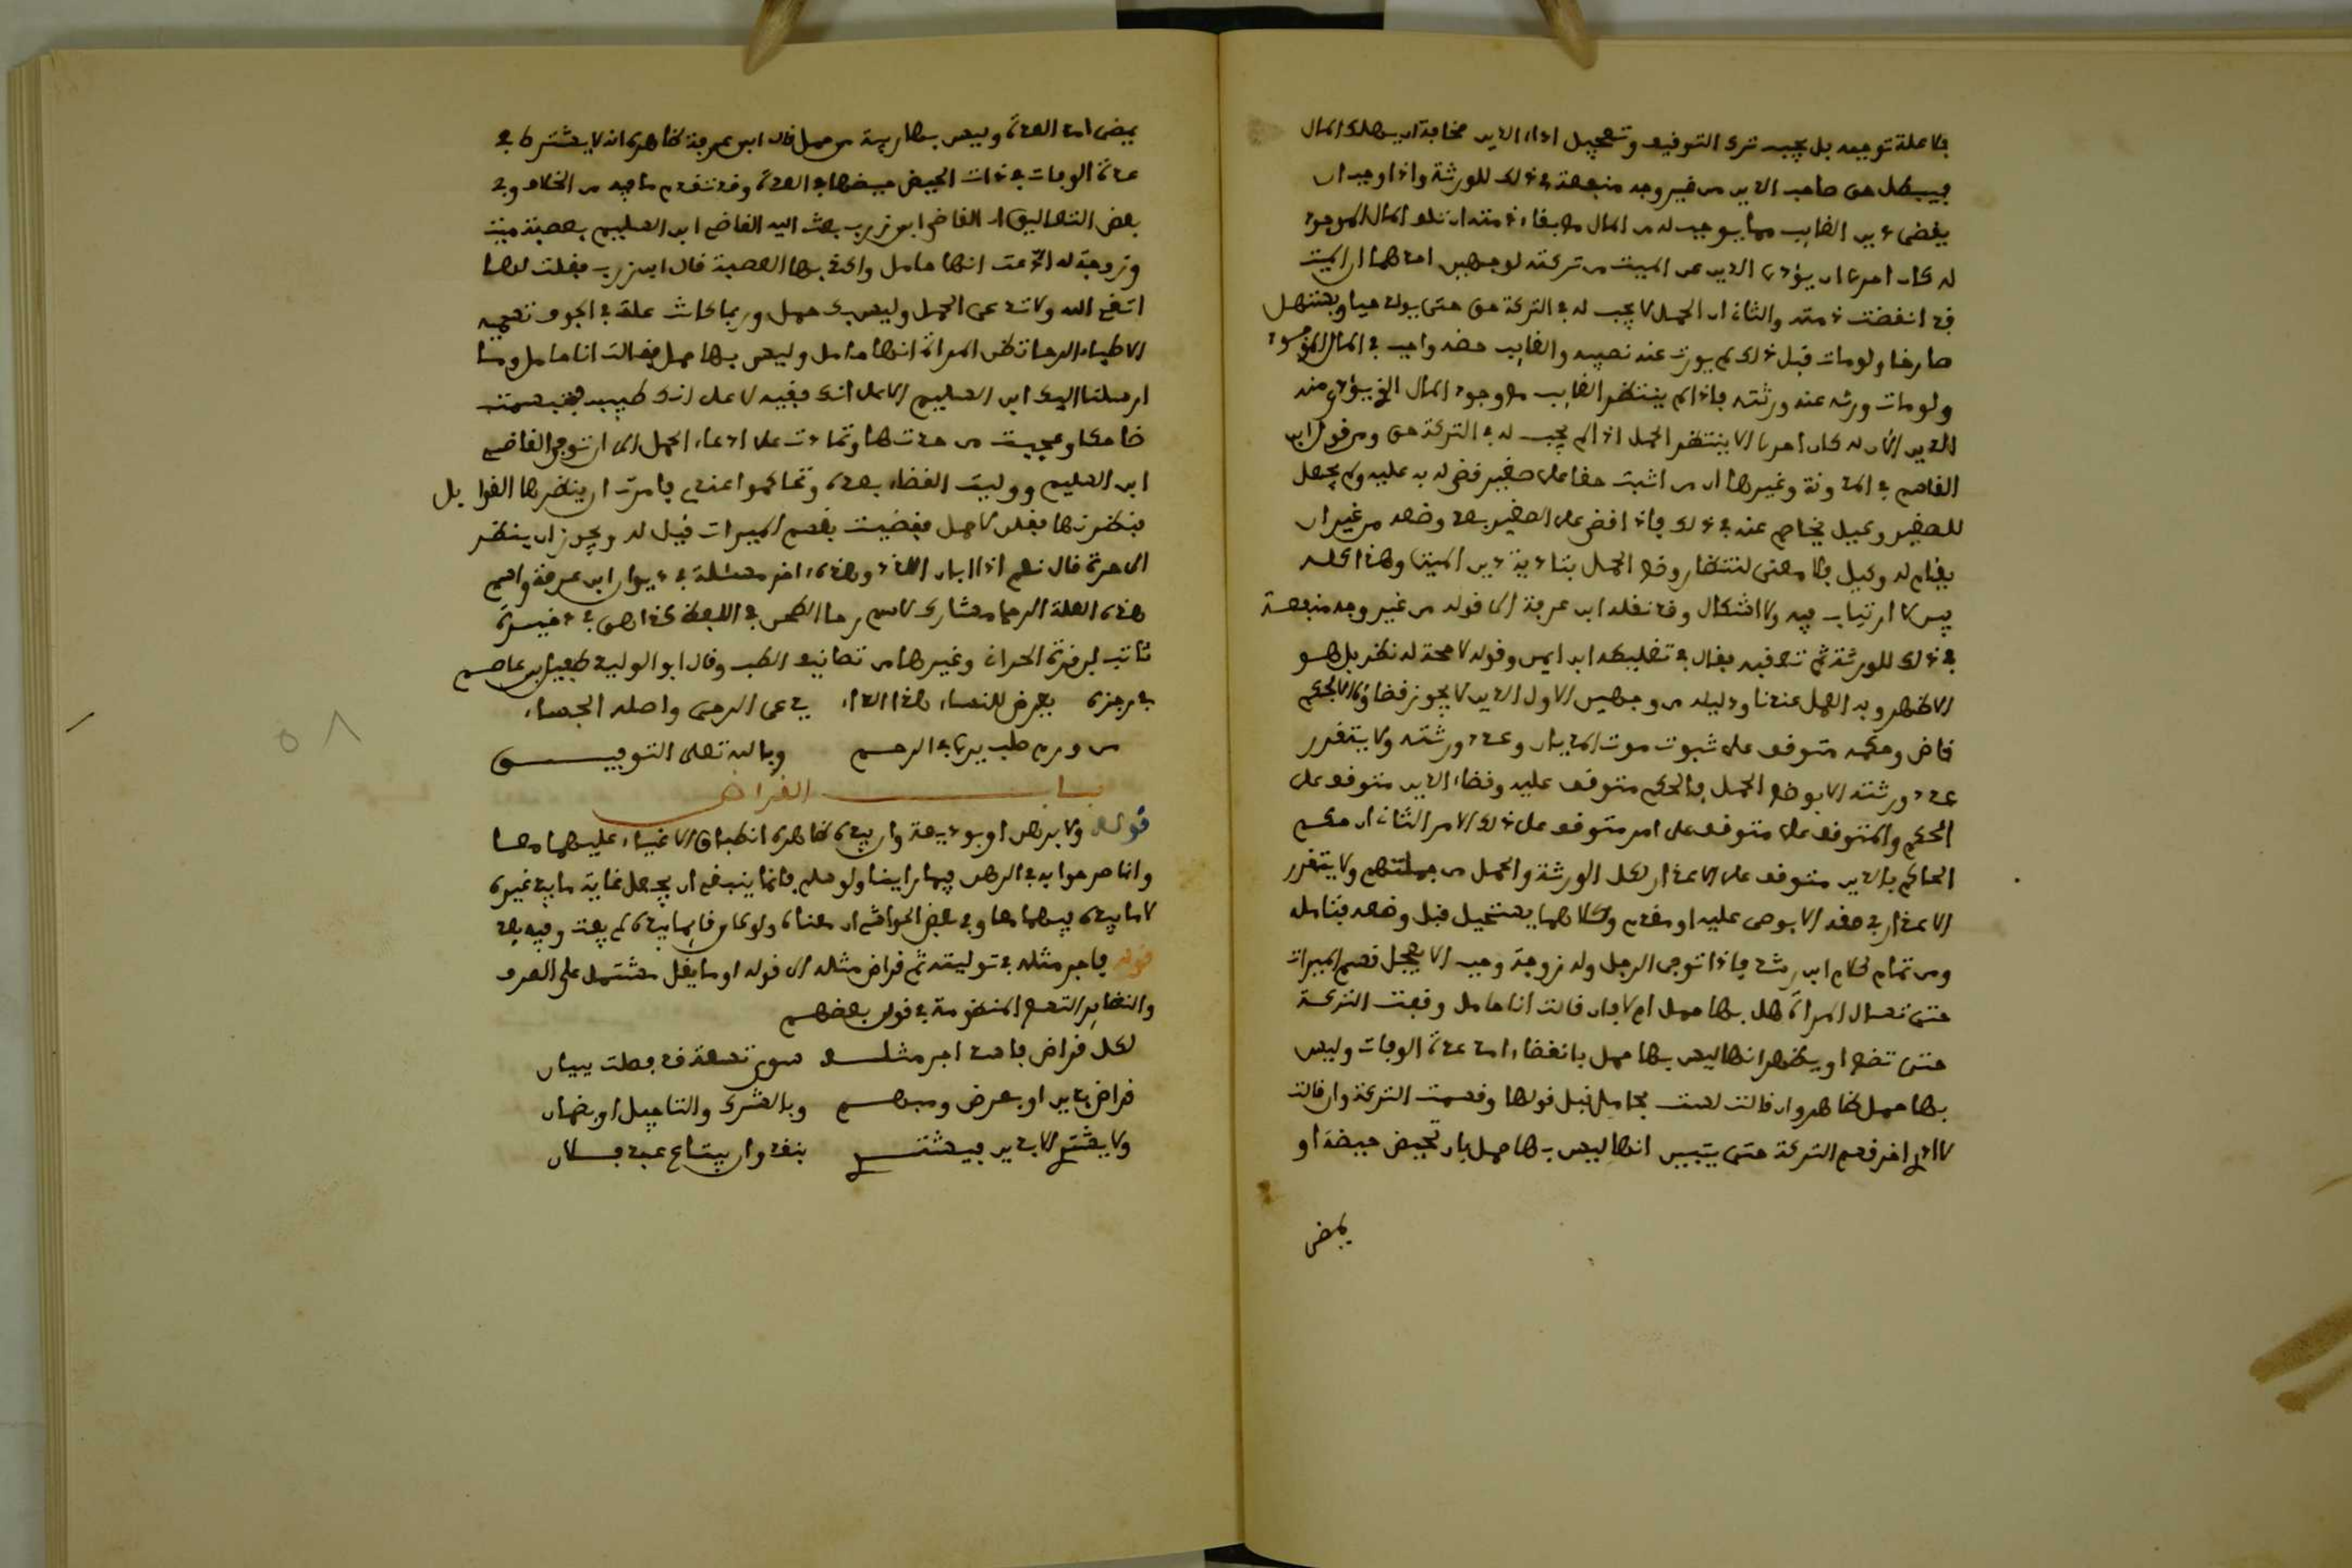 فلا علة توجبه بل يجب ترك التوقيف وتعجيل اداء الدين مخافة ان يهلك المال
فيبطل حق صاحب الدين من غير وجه منفعة في ذلك للورثة واذا وجب ان
يقضى دين الغايب مما يوجد له من المال مع بقاء ذمته ان تلف المال الموجود
له كان احرى ان يؤدى الدين عن الميت من تركته لوجهين احدهما ان الميت
قد انقضت ذمته والثاني ان الحمل لا يجب له في التركة حق حتى يولد حيا ويستهل
صارخا ولو مات قبل ذلك لم يورث عنه نصيبه والغايب حقه واجب في المال الموجود
ولو مات ورثه عنه ورثته فاذا لم ينتظر الغايب مع وجود المال الذي يؤدى منه
الدين الآن له كان احرى الا ينتظر الحمل اذ لم يجب له في التركة حق ومن قول ابن
القاسم في المدونة وغيرها ان من اثبت حقا على صغير قضي له به عليه ولم يجعل
للصغير وكيل يخاصم عنه في ذلك فاذا قضى على الصغير بعد وضعه من غير ان
يقام له وكيل فلا معنى لانتظار وضع الحمل بتادية دين الميت وهذا كله
بين لا ارتياب فيه ولا اشكال وقد نقله ابن عرفة الى قوله من غير وجه منفعة
في ذلك للورثة ثم تعقبه فقال في تغليطه ابن ايمن وقوله لا حجة له نظر بل هو
الاظهر وبه العمل عندنا ودليله من وجهين الاول الدين لا يجوز قضاؤه الا بحكم
قاض وحكمه متوقف على ثبوت موت المديان وعدد ورثته ولا يتقرر
عدد ورثته الا بوضع الحمل فالحكم متوقف عليه وقضاء الدين متوقف على
الحكم والمتوقف على متوقف على امر متوقف على ذلك الامر الثاني ان حكم
الحاكم بالدين متوقف على الاعذار لكل الورثة والحمل من جملتهم ولا يتقرر
الاعذار في حقه الا بوصي عليه او مقدم وكلاهما يستحيل قبل وضعه فتامله
ومن تمام كلام ابن رشد فاذا توفي الرجل وله زوجة وجب الا يعجل قسم الميراث
حتى تسال المراة هل بها حمل ام لا فان قالت انا حامل وقفت التركة
حتى تضع او يظهر انها ليس بها حمل بانقضاء امد عدة الوفات وليس
بها حمل ظاهر وان قالت لست بحامل قبل قولها وقسمت التركة وان قالت
لا ادري اخر قسم التركة حتى يتبين انها ليس بها حمل بان تحيض حيضة او
يمضى
يمضى امد العدة وليس بها ريبة من حمل قال ابن عرفة ظاهره انه لا يشترط في
عدة الوفات في ذات الحيض حيضها في العدة وقد تقدم ما فيه من الخلاف وفي
بعض التعاليق ان القاضي ابن زرب بعث اليه القاضي ابن السليم بعصبة ميت
وزوجة له ادعت انها حامل واكذبها العصبة قال ابن زرب فقلت لها
اتقي الله ولا تدعي الحمل وليس بك حمل وربما كانت علة في الجوف تسميه
الاطباء الرحا تظن المراة انها حامل وليس بها حمل فقالت انا حامل وما
ارسلنا اليك ابن السليم الا على انك فقيه لا على انك طبيب فتبسمت
ضاحكا وعجبت من حدتها وتمادت على ادعاء الحمل الى ان توفي القاضي
ابن السليم ووليت القضاء بعده وتحاكموا عندي فامرت ان ينظرها القوابل
فنظرنها فقلن لا حمل فقضيت بقسم الميراث قيل له ويجوز ان ينظر
الى حرة قال نعم اذا ابان الله وهذه اخر مسئلة في ديوان ابن عرفة واسم
هذه العلة الرحا مشارك لاسم رحا الطحن في اللفظ كذا هو في ذخيرة
ثابت بن قرة الحراني وغيرها من تصانيف الطب وقال ابو الوليد طفيل بن عاصم
في رجزه يعرض للنساء هذا الداء يدعى الرحى واصله الجساء
من ورم صلب يرى في الرحم وبالله تعلى التوفيـــق
بـــاب القراض
قوله ولا برهن او بوديعة وان بيده ظاهره انطباق الاغياء عليهما معا
وانما صرحوا به في الرهن فيما راينا ولو سلم فانما ينبغي ان يجعل غاية ما بيد غيره
لا ما بيده فيهما معا وفي بعض الحواشي ان معناه ولو كان قايما بيده لم يفت وفيه بعد
قوله فاجر مثله في توليته ثم قراض مثله الى قوله او ما يقل مشتمل على الصرف
والنظاير التسع المنظومة في قول بعضهم
لكل قراض فاسد اجر مثلـــه سوى تسعة قد فصلت ببيان
قراض بدين او بعرض ومبهـــم وبالشرك والتاجيل او بضمان
ولا يشتري الا بدين فيشتـــري بنقد وان يبتاع عبد فـــلان